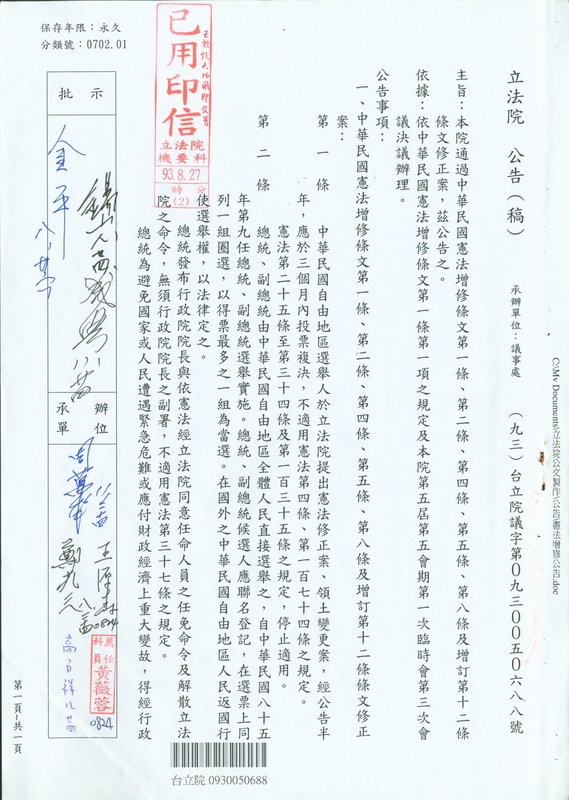 保存年限：永久
分類號：0702.01
已用印信
立法院
機要科
93.8.27
時 分
(2)
立法院　公告（稿）
承辦單位：議事處
（九三）台立院議字第０九三００五０六八八號
主旨：本院通過中華民國憲法增修條文第一條、第二條、第四條、第五條、第八條及增訂第十二條
條文修正案，茲公告之。
依據：依中華民國憲法增修條文第一條第一項之規定及本院第五屆第五會期第一次臨時會第三次會
議決議辦理。
公告事項：
一、中華民國憲法增修條文第一條、第二條、第四條、第五條、第八條及增訂第十二條條文修正
案：
第一條　中華民國自由地區選舉人於立法院提出憲法修正案、領土變更案，經公告半
年，應於三個月內投票複決，不適用憲法第四條、第一百七十四條之規定。
憲法第二十五條至第三十四條及第一百三十五條之規定，停止適用。
第二條　總統、副總統由中華民國自由地區全體人民直接選舉之，自中華民國八十五
年第九任總統、副總統選舉實施。總統、副總統候選人應聯名登記，在選票上同
列一組圈選，以得票最多之一組為當選。在國外之中華民國自由地區人民返國行
使選舉權，以法律定之。
總統發布行政院院長與依憲法經立法院同意任命人員之任免命令及解散立法
院之命令，無須行政院院長之副署，不適用憲法第三十七條之規定。
總統為避免國家或人民遭遇緊急危難或應付財政經濟上重大變故，得經行政
批示
承辦
單位
薦任
科員
黃薇蓉
0824
第一頁~共一頁
C:\My Documents\立法院公文製作\公告\憲法增修公告.doc
台立院 0930050688